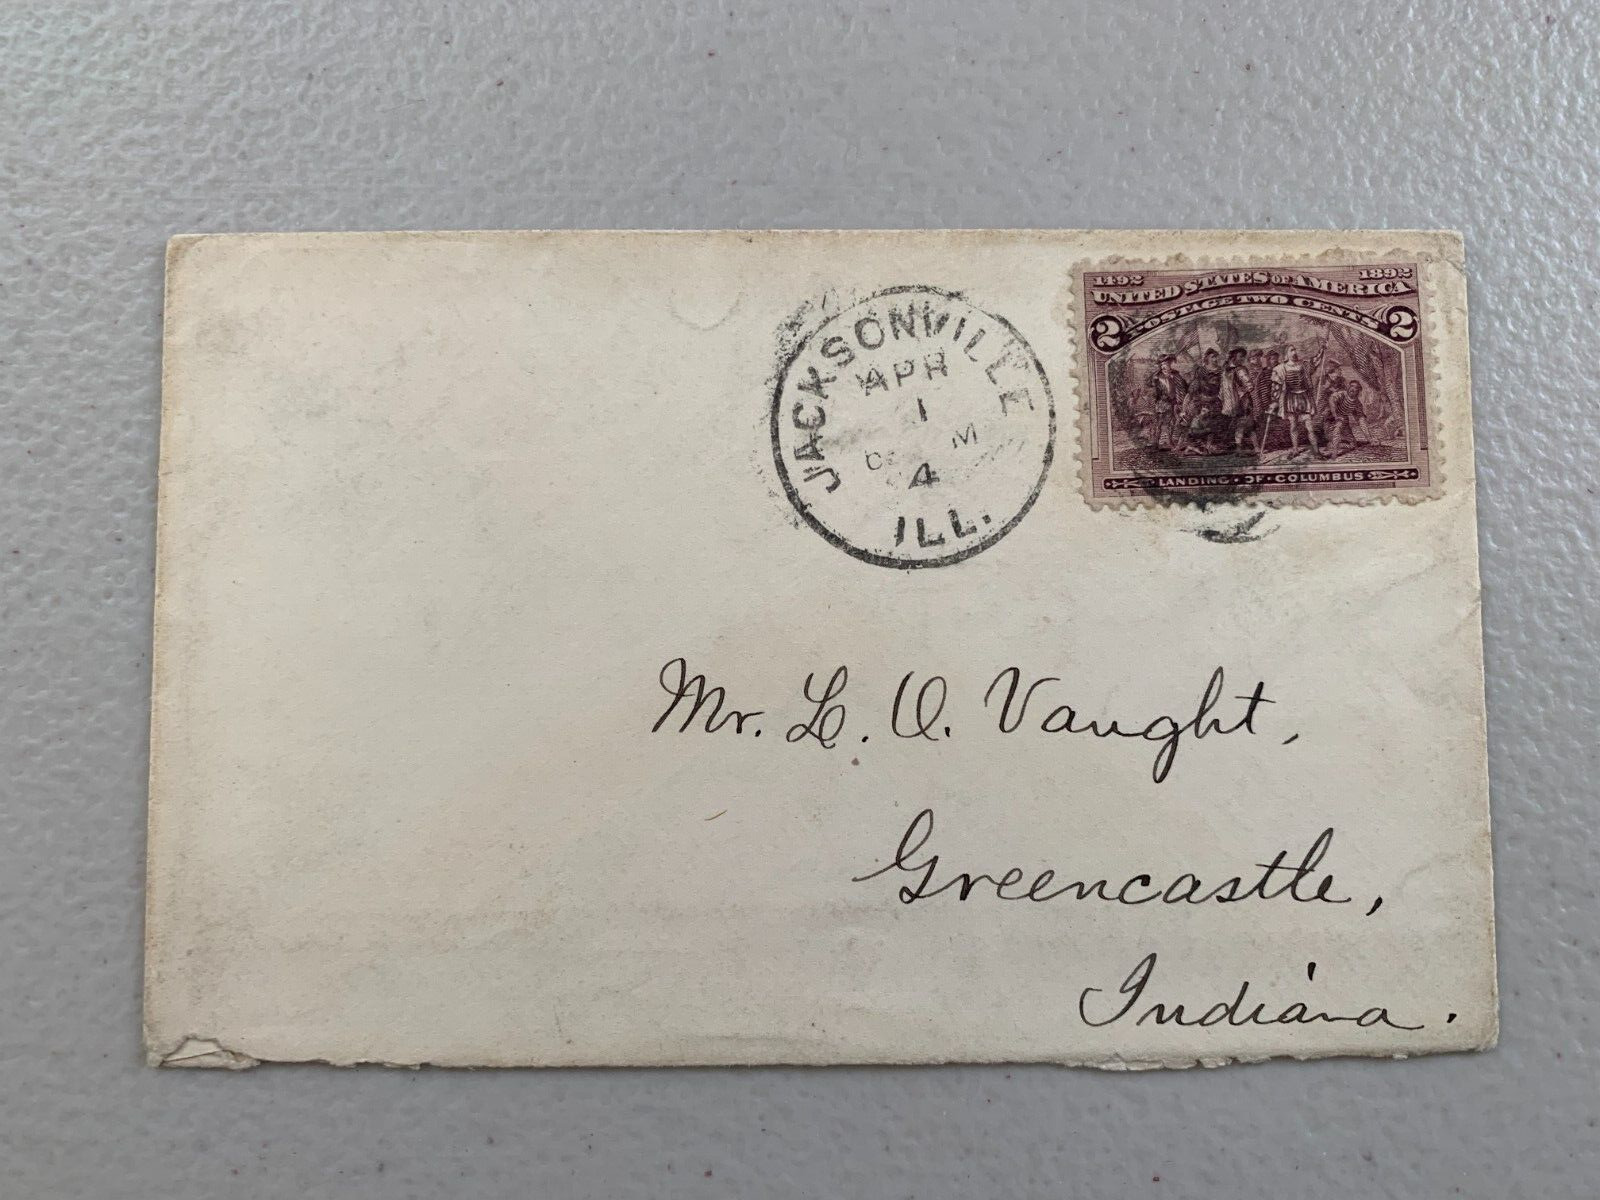 JACKSONVILLE
APR
1
M
4
ILL.
1492 1892
UNITED STATES OF AMERICA
POSTAGE TWO CENTS
2 2
LANDING · OF · COLUMBUS
Mr. L. O. Vaught,
Greencastle,
Indiana.